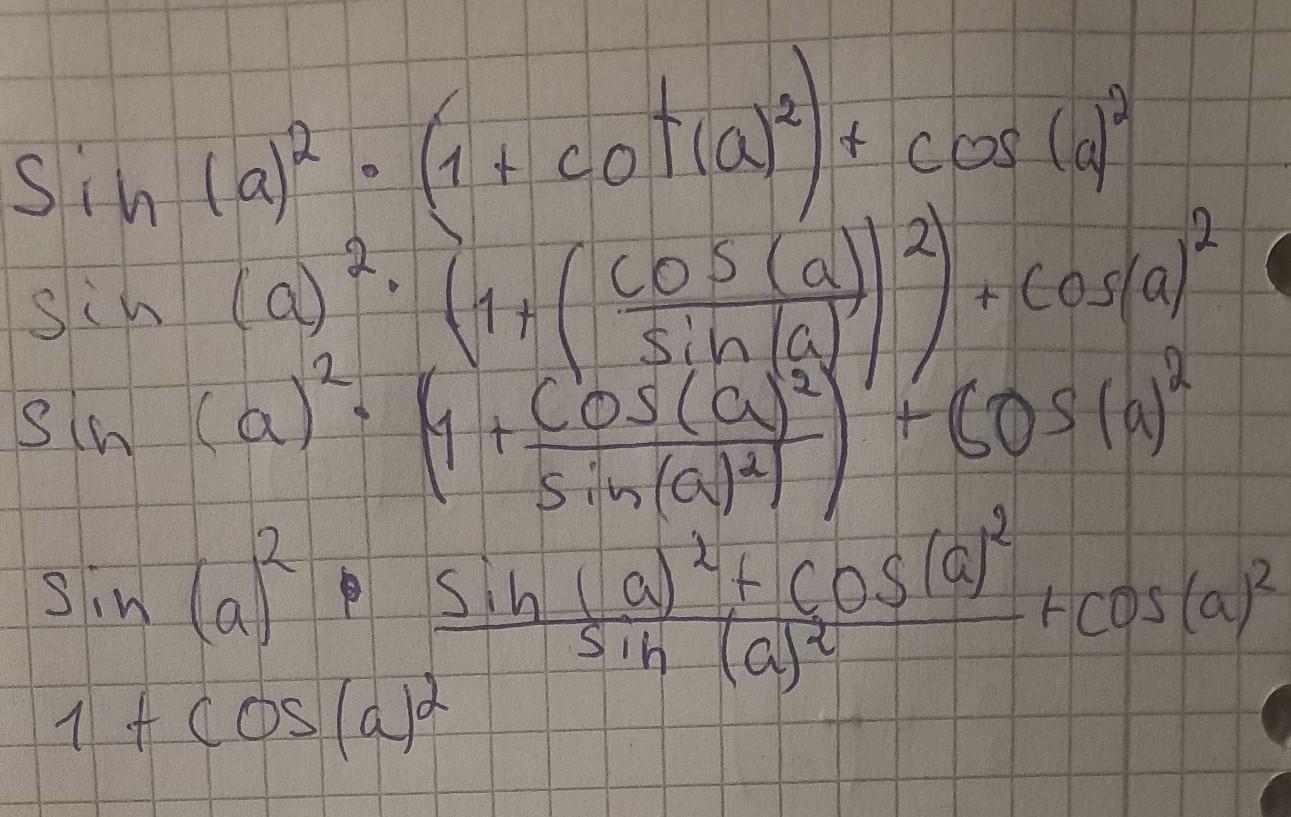 sin (a)² · (1 + cot(a)²) + cos (a)²
sin (a)² · (1 + (cos (a)/sin (a))²) + cos(a)²
sin (a)² · (1 + cos(a)²/sin(a)²) + cos (a)²
sin (a)² · (sin (a)² + cos (a)²)/sin (a)² + cos (a)²
1 + cos (a)²